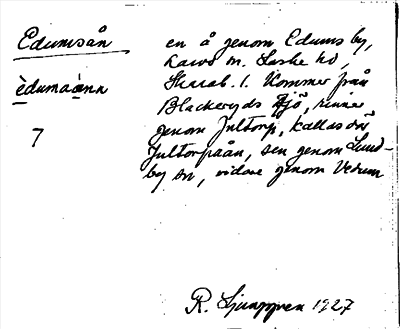 Edumsån
èdumaànn
7
en å genom Edums by,
Laske hd,
Skarab. l. Kommer från
Blackeryds sjö, rinner
genom Jultorp, kallas där
Jultorpaån, sen genom Lund-
by sn, vidare genom Vedum
R. Ljunggren 1927